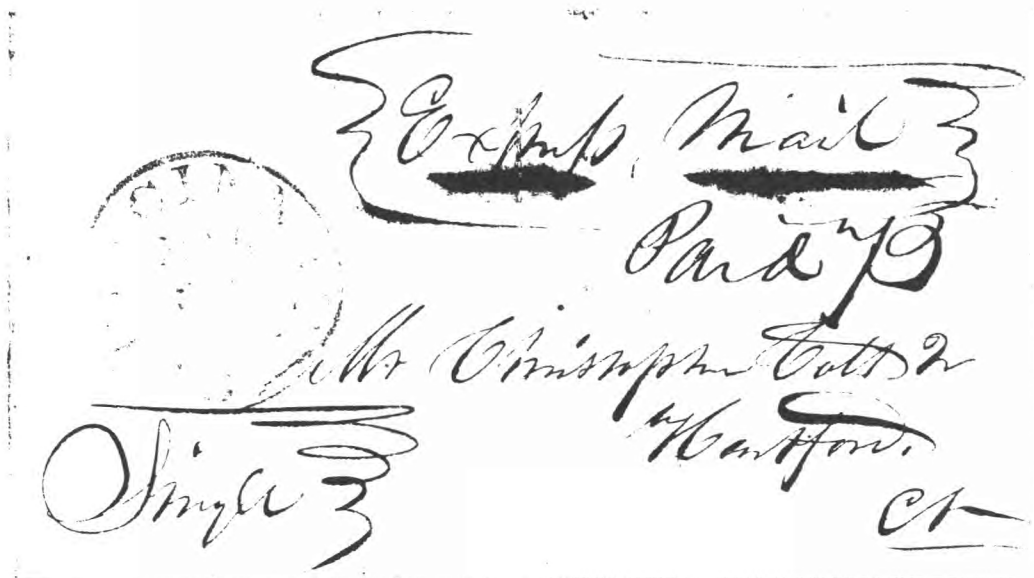 Express Mail
Paid 75
Mr Christopher Colt Jr
Hartford.
Single
Ct